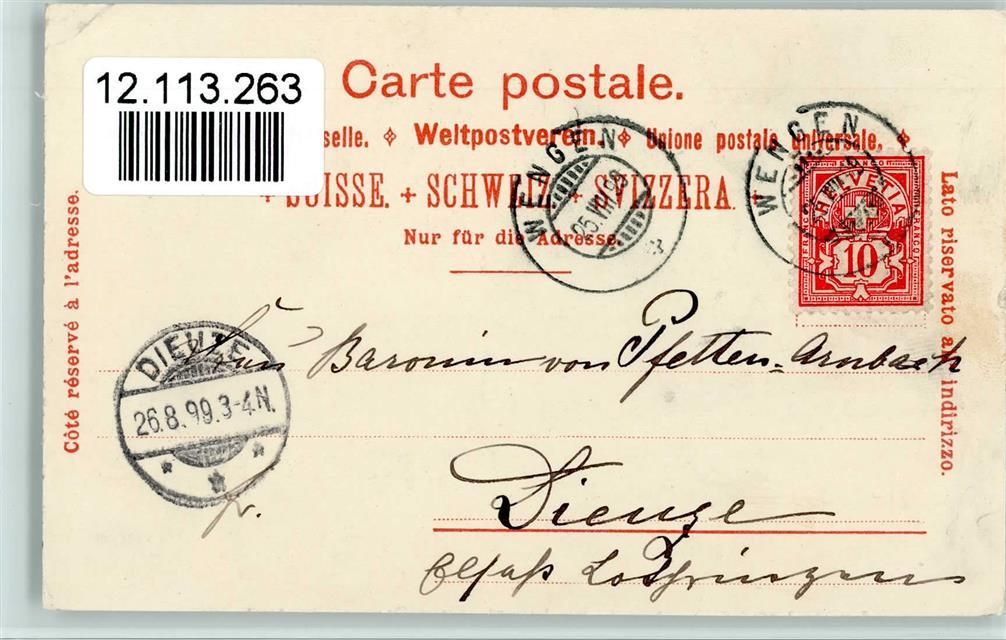 12.113.263
Carte postale.
selle. Weltpostverein. Unione postale universale.
+ SUISSE. + SCHWEIZ. + SVIZZERA. +
Nur für die Adresse.
Côté réservé à l'adresse.
Lato riservato all'indirizzo.
WENGEN
25.VIII.99
WENGEN
FRANCO
HELVETIA
10
DIEUZE
26.8.99.3-4N.
Frau Baronin von Pfetten-Arnbach
Dieuze
Elsaß Lothringen
fr.